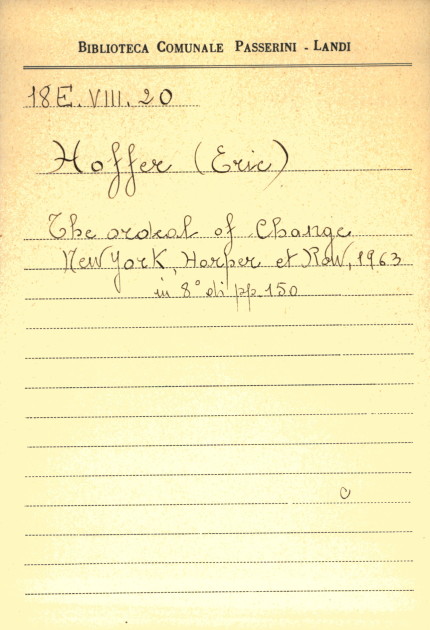 BIBLIOTECA COMUNALE PASSERINI - LANDI
18E. VIII. 20
Hoffer (Eric)
The ordeal of Change
New York, Harper et Row, 1963
in 8° di pp. 150
c